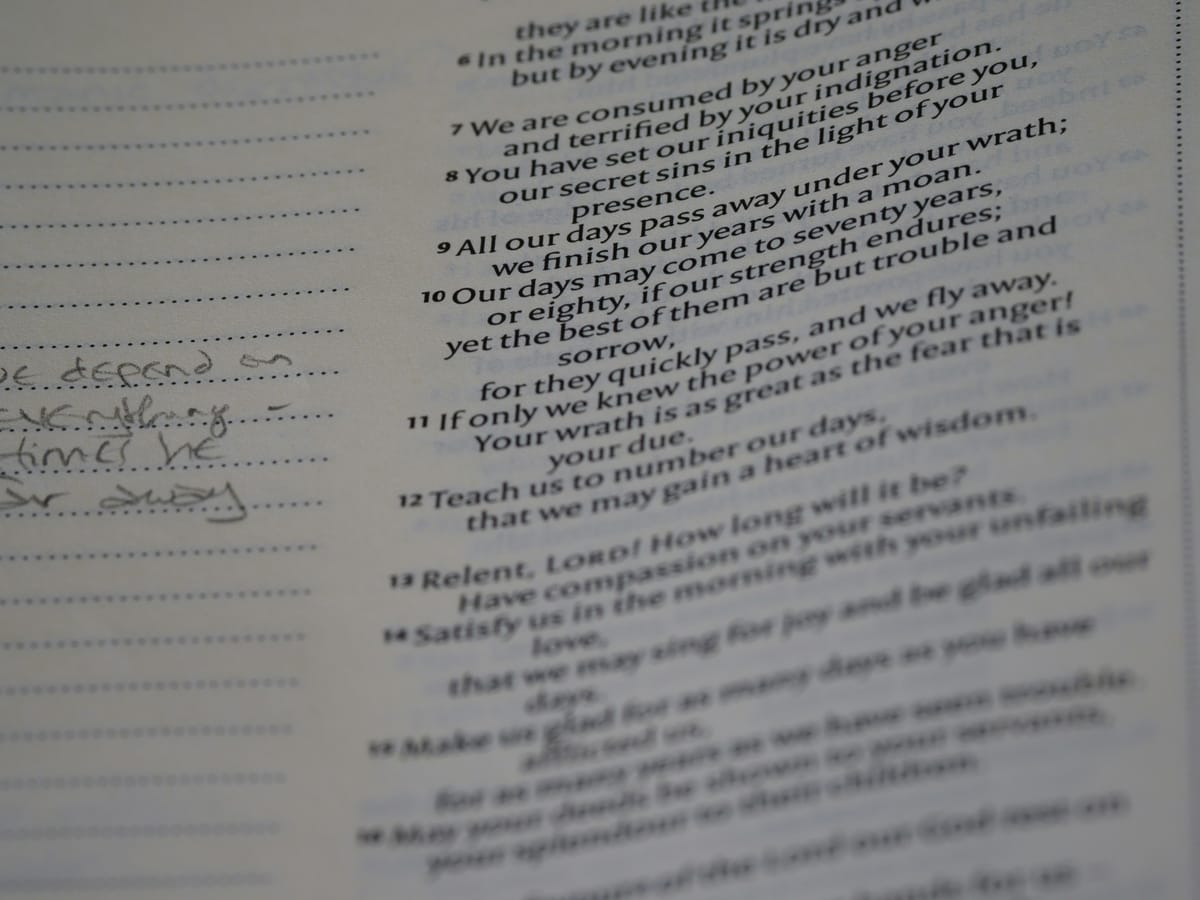 they are like the
6 In the morning it springs
but by evening it is dry and
7 We are consumed by your anger
and terrified by your indignation.
8 You have set our iniquities before you,
our secret sins in the light of your
presence.
9 All our days pass away under your wrath;
we finish our years with a moan.
10 Our days may come to seventy years,
or eighty, if our strength endures;
yet the best of them are but trouble and
sorrow,
for they quickly pass, and we fly away.
11 If only we knew the power of your anger!
Your wrath is as great as the fear that is
your due.
12 Teach us to number our days,
that we may gain a heart of wisdom.
13 Relent, LORD! How long will it be?
Have compassion on your servants.
14 Satisfy us in the morning with your unfailing
love,
that we may sing for joy and be glad all our
days.
15 Make us glad for as many days as you have
afflicted us,
for as many years as we have seen trouble.
16 May your deeds be shown to your servants,
your splendour to their children.
of the Lord our God rest on
depend on
everything -
times he
away